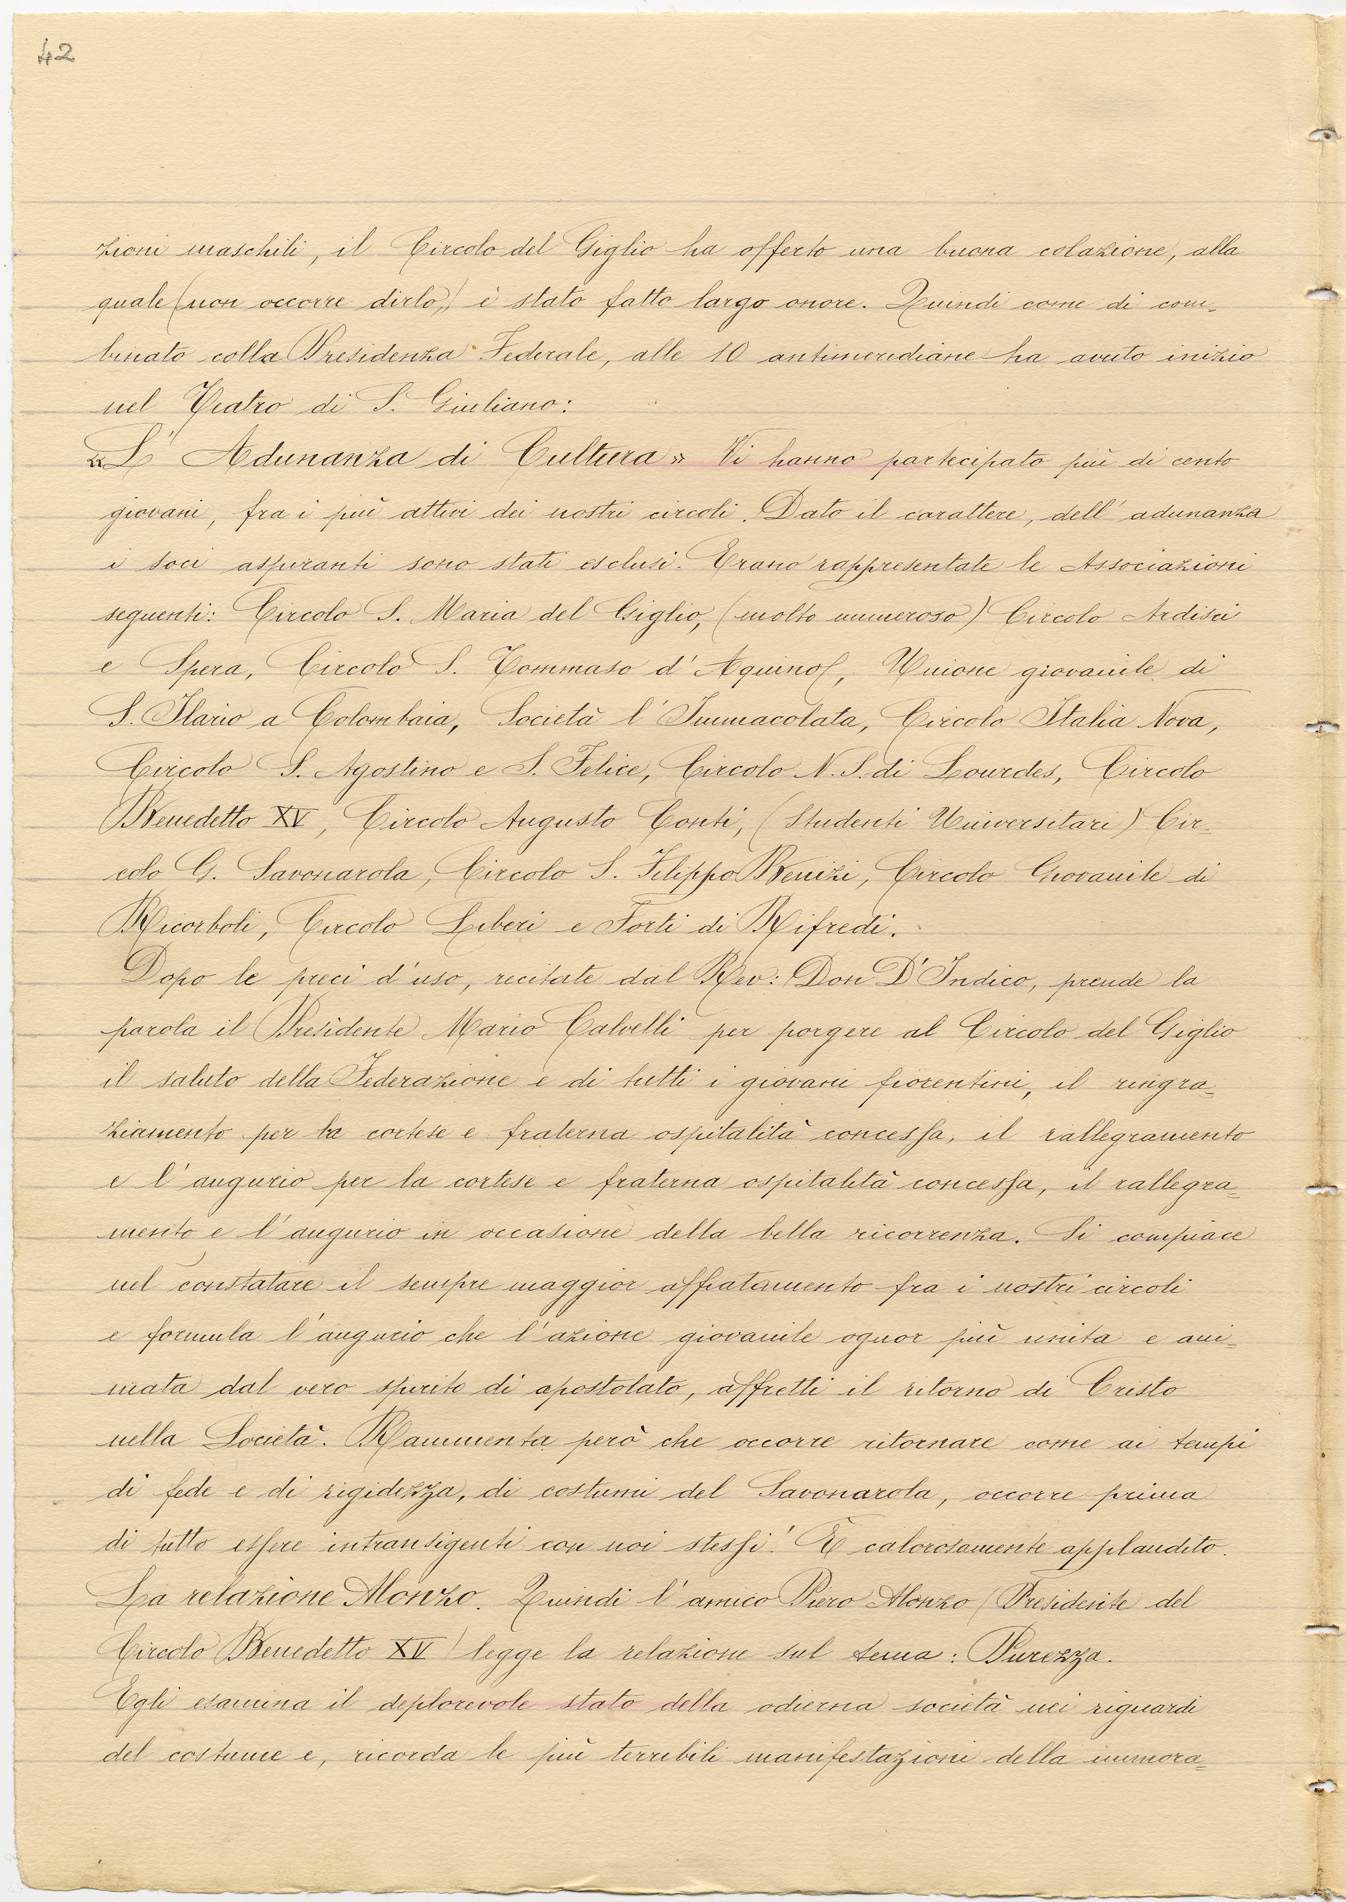 42
zioni maschili, il Circolo del Giglio ha offerto una buona colazione, alla
quale (non occorre dirlo,) è stato fatto largo onore. Quindi come di com-
binato colla Presidenza Federale, alle 10 antimeridiane ha avuto inizio
nel Teatro di S. Giuliano:
«L' Adunanza di Cultura» Vi hanno partecipato più di cento
giovani, fra i più attivi dei nostri circoli. Dato il carattere, dell' adunanza
i soci aspiranti sono stati esclusi. Erano rappresentate le Associazioni
seguenti: Circolo S. Maria del Giglio, (molto numeroso) Circolo Ardisci
e Spera, Circolo S. Tommaso d' Aquino, Unione giovanile di
S. Ilario a Colombaia, Società l' Immacolata, Circolo Italia Nova,
Circolo S. Agostino e S. Felice, Circolo N. S. di Lourdes, Circolo
Benedetto XV, Circolo Augusto Conti, (Studenti Universitari) Cir-
colo G. Savonarola, Circolo S. Filippo Benizi, Circolo Giovanile di
Ricorboli, Circolo Liberi e Forti di Rifredi.
Dopo le preci d' uso, recitate dal Rev: Don D'Indico, prende la
parola il Presidente Mario Calvelli per porgere al Circolo del Giglio
il saluto della Federazione e di tutti i giovani fiorentini, il ringra=
ziamento per la cortese e fraterna ospitalità concessa, il rallegramento
e l' augurio per la cortese e fraterna ospitalità concessa, il rallegra=
mento e l' augurio in occasione della bella ricorrenza. Si compiace
nel constatare il sempre maggior affiatamento fra i nostri circoli
e formula l' augurio che l' azione giovanile ognor più unita e ani=
mata dal vero spirito di apostolato, affretti il ritorno di Cristo
nella Società. Rammenta però che occorre ritornare come ai tempi
di fede e di rigidezza, di costumi del Savonarola, occorre prima
di tutto essere intransigenti con noi stessi! È calorosamente applaudito.
La relazione Alonzo. Quindi l' amico Piero Alonzo (Presidente del
Circolo Benedetto XV) legge la relazione sul tema: Purezza.
Egli esamina il deplorevole stato della odierna società nei riguardi
del costume e, ricorda le più terribili manifestazioni della immora=